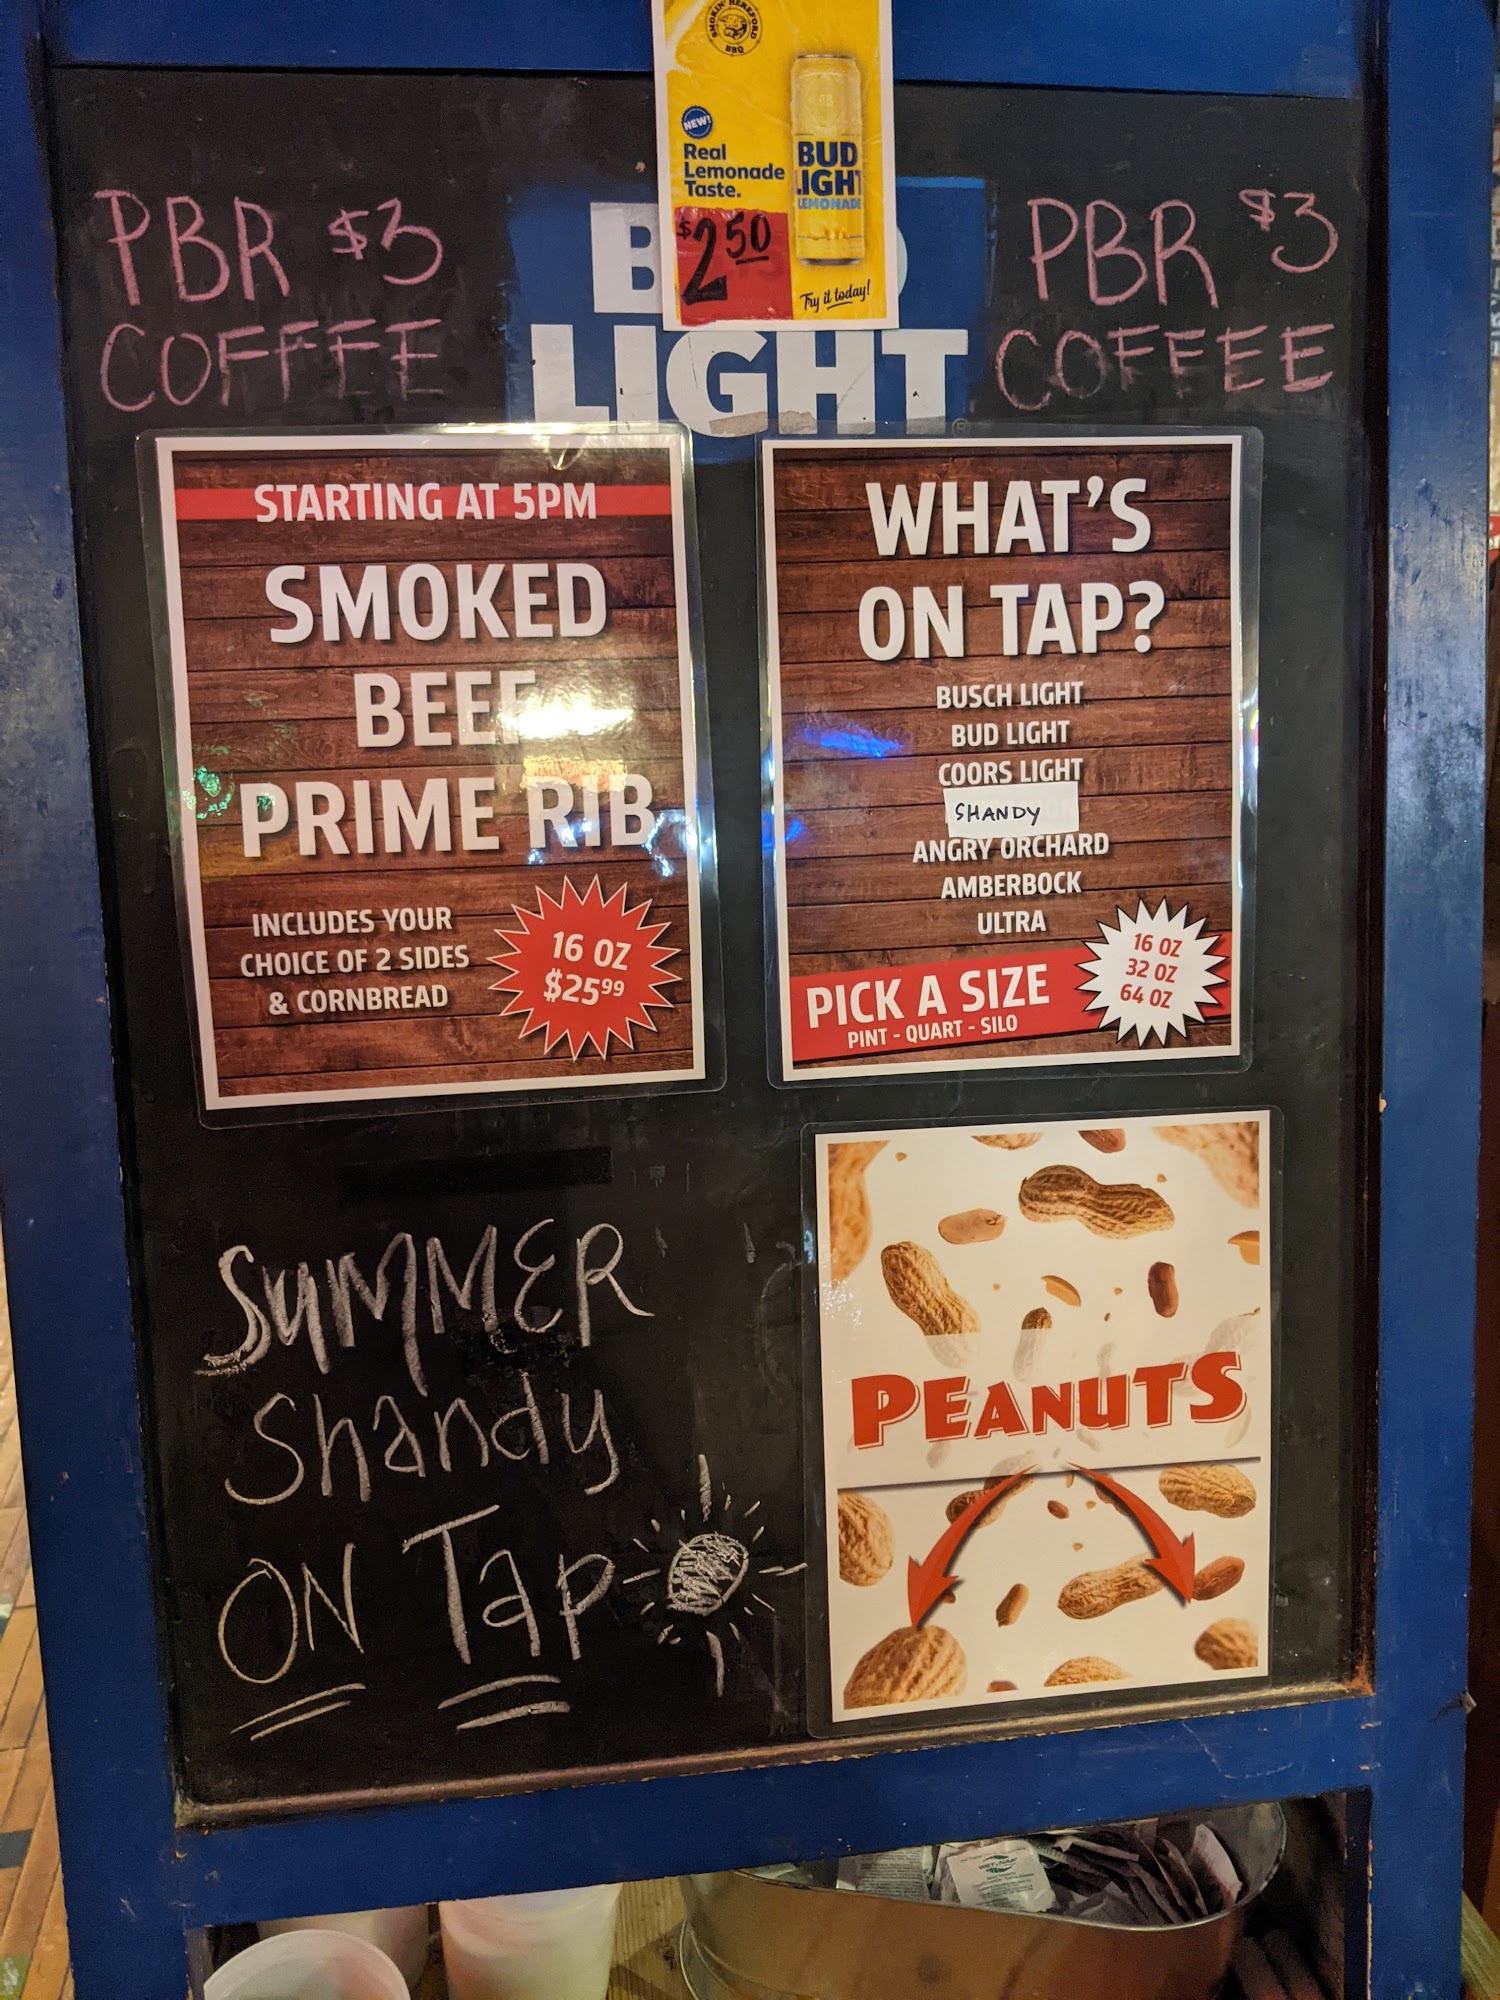 SMOKIN' HEREFORD
BBQ
NEW!
Real
Lemonade
Taste.
$2.50
BUD
LIGHT
LEMONADE
Try it today!
PBR $3
COFFEE
LIGHT
PBR $3
COFFEE
STARTING AT 5PM
SMOKED
BEEF
PRIME RIB
INCLUDES YOUR
CHOICE OF 2 SIDES
& CORNBREAD
16 OZ
$25.99
WHAT'S
ON TAP?
BUSCH LIGHT
BUD LIGHT
COORS LIGHT
SHANDY
ANGRY ORCHARD
AMBERBOCK
ULTRA
PICK A SIZE
PINT - QUART - SILO
16 OZ
32 OZ
64 OZ
SUMMER
Shandy
ON Tap
PEANUTS
WET-NAP